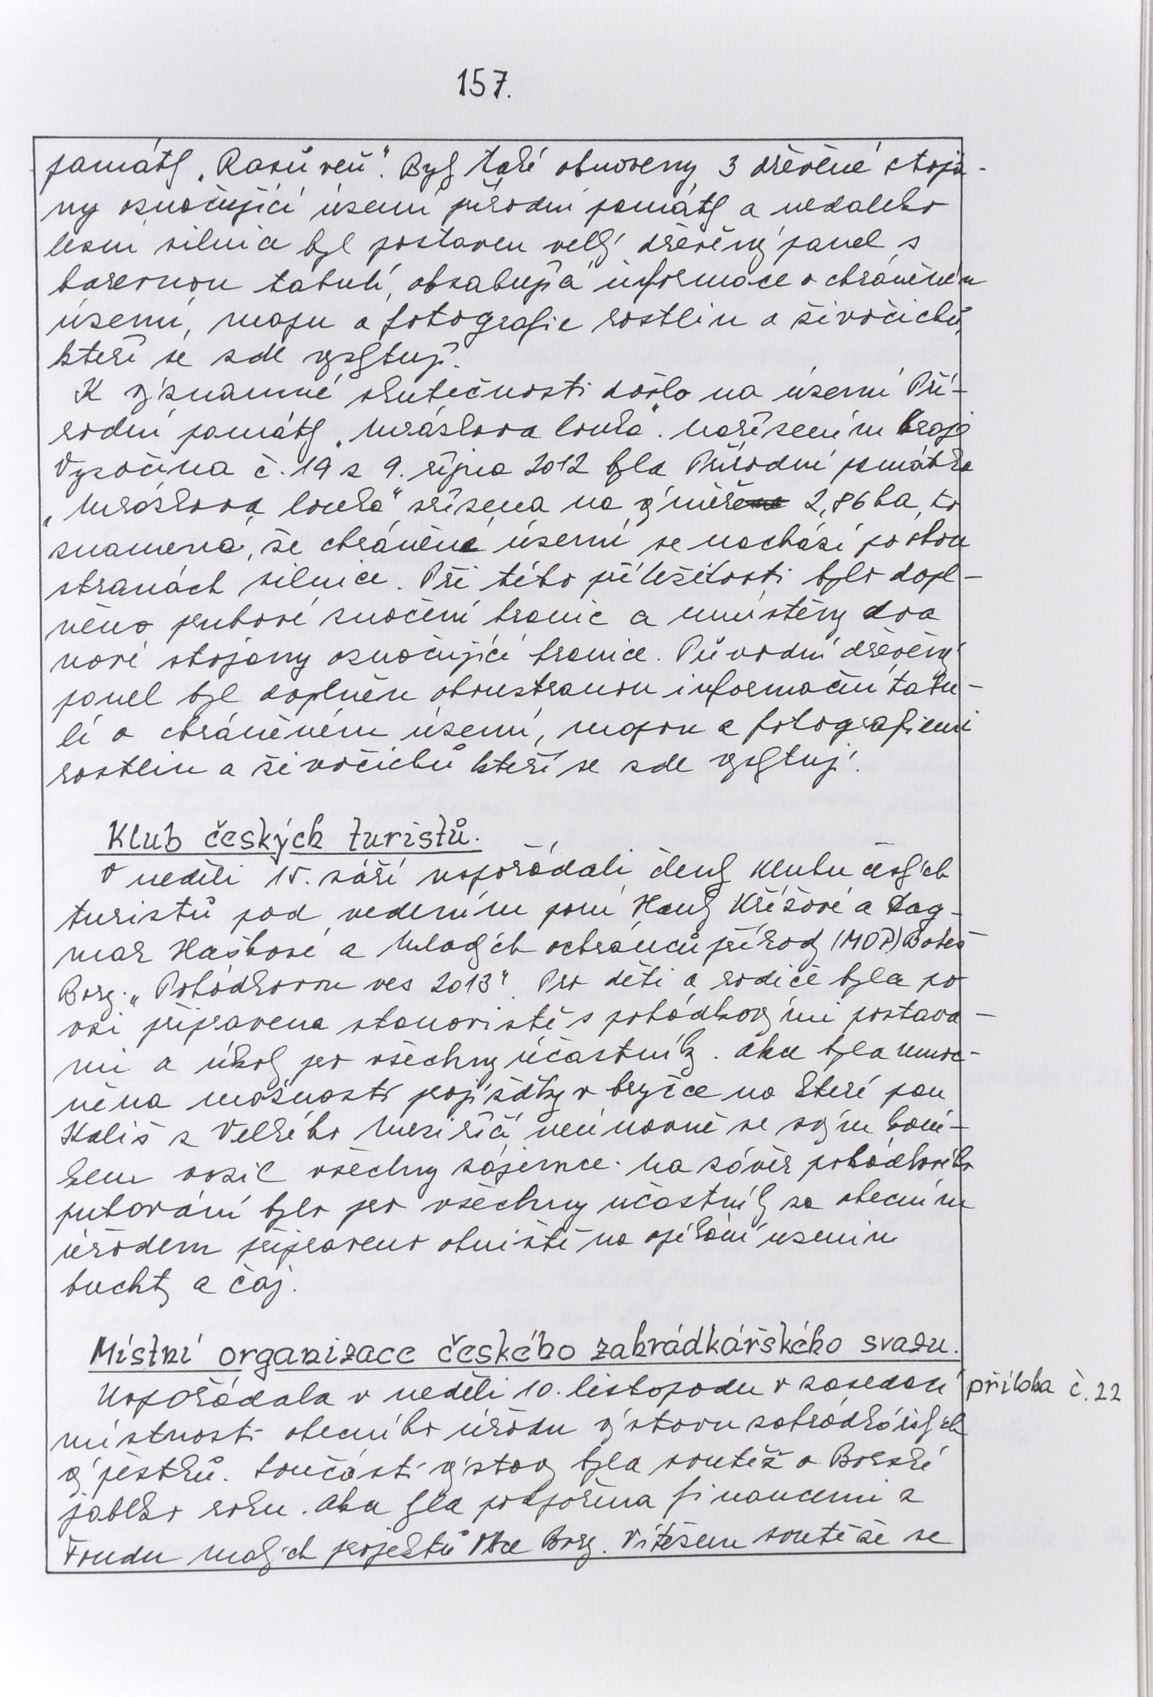 157.
památky „Rasůveň". Byly také obnoveny 3 dřevěné stoja-
ny označující území přírodní památky a nedaleko
lesní silnice byl postaven velký dřevěný panel s
barevnou tabulí, obsahující informace o chráněném
území, mapu a fotografie rostlin a živočichů,
kteří se zde vyskytují.
K významné skutečnosti došlo na území Pří-
rodní památky „Mrázkova louka". Nařízením kraje
Vysočina č. 19 z 9. října 2012 byla Přírodní památka
„Mrázkova louka" zřízena na výměře 2,86 ha, to
znamená, že chráněné území se nachází po obou
stranách silnice. Při této příležitosti bylo dopl-
něno pruhové značení hranic a umístěny dva
nové stojany označující hranice. Původní dřevěný
panel byl doplněn oboustrannou informační tabu-
lí o chráněném území, mapou a fotografiemi
rostlin a živočichů kteří se zde vyskytují.
Klub českých turistů.
V neděli 15. září uspořádali členy Klubu českých
turistů pod vedením paní Hany Křížové a Dag-
mar Haškové a Mladých ochránců přírody (MOP) Bobeš
Bory. „Pohádkovou ves 2013". Pro děti a rodiče byla po
vsi připravena stanoviště s pohádkovými postava-
mi a úkoly pro všechny účastníky. Akce byla umoc-
něna možností projížďky v bryčce na které pan
Kališ z Velkého Meziříčí neúnavně se svým koní-
kem vozil všechny zájemce. Na závěr pohádkového
putování bylo pro všechny účastníky za obecním
úřadem připraveno ohniště na opékání uzenin
buchty a čaj.
Místní organizace českého zahrádkářského svazu.
Uspořádala v neděli 10. listopadu v zasedací
příloha č. 22
místnosti obecního úřadu výstavu zahrádkářských
výpěstků. Součástí výstavy byla soutěž o Borské
jablko roku. Akce byla podpořena financemi z
Fondu malých projektů Obce Bory. Vítězem soutěže se